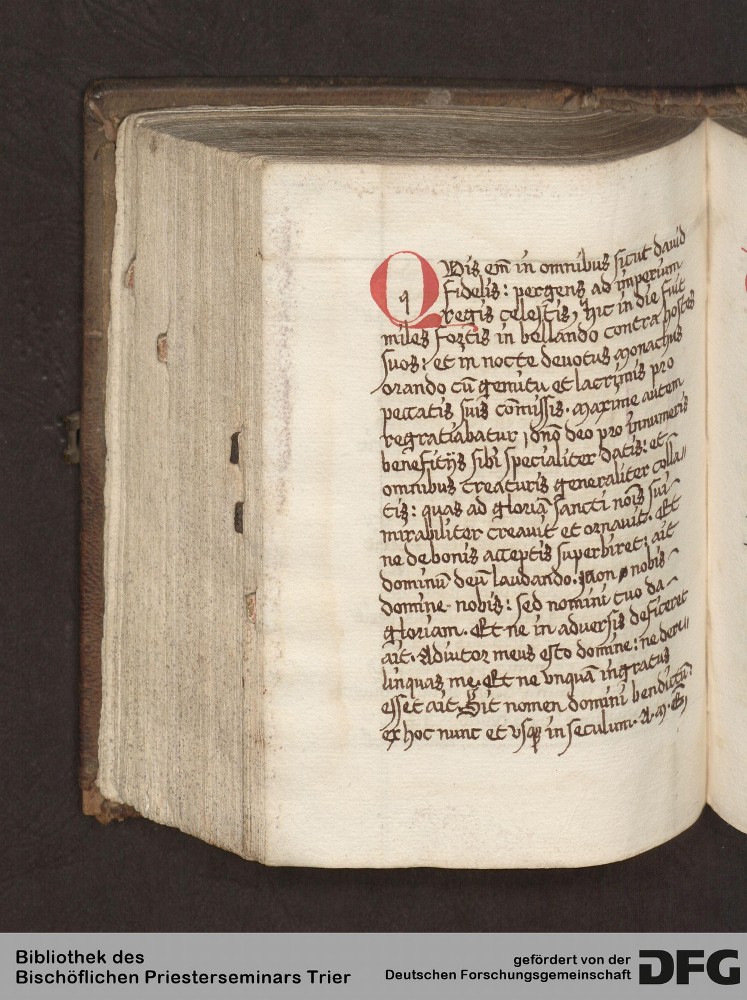 QVis em̄ in omnibus sicut dauid
fidelis: pergens ad imperium
regis celestis, hic in die fuit
miles fortis in bellando contra hostes
suos: et in nocte deuotus monachus
orando cū gemitu et lacrimis pro
peccatis suis cōmissis. maxime autem
regratiabatur dn̄o deo pro innumeris
benefitijs sibi specialiter datis: et
omnibus creaturis generaliter colla//
tis: quas ad gloriā sancti nōis sui
mirabiliter creauit et ornauit. Et
ne de bonis acceptis superbiret: ait
dominū deū laudando. Non nobis
domine nobis: sed nomini tuo da
gloriam. Et ne in aduersis deficeret
ait. Adiutor meus esto domine: ne dere//
linquas me. Et ne vnquā ingratus
esset ait. Sit nomen domini bendictū:
ex hoc nunc et vsqꝫ in seculum. A. M. E.
Bibliothek des
Bischöflichen Priesterseminars Trier
gefördert von der
Deutschen Forschungsgemeinschaft DFG